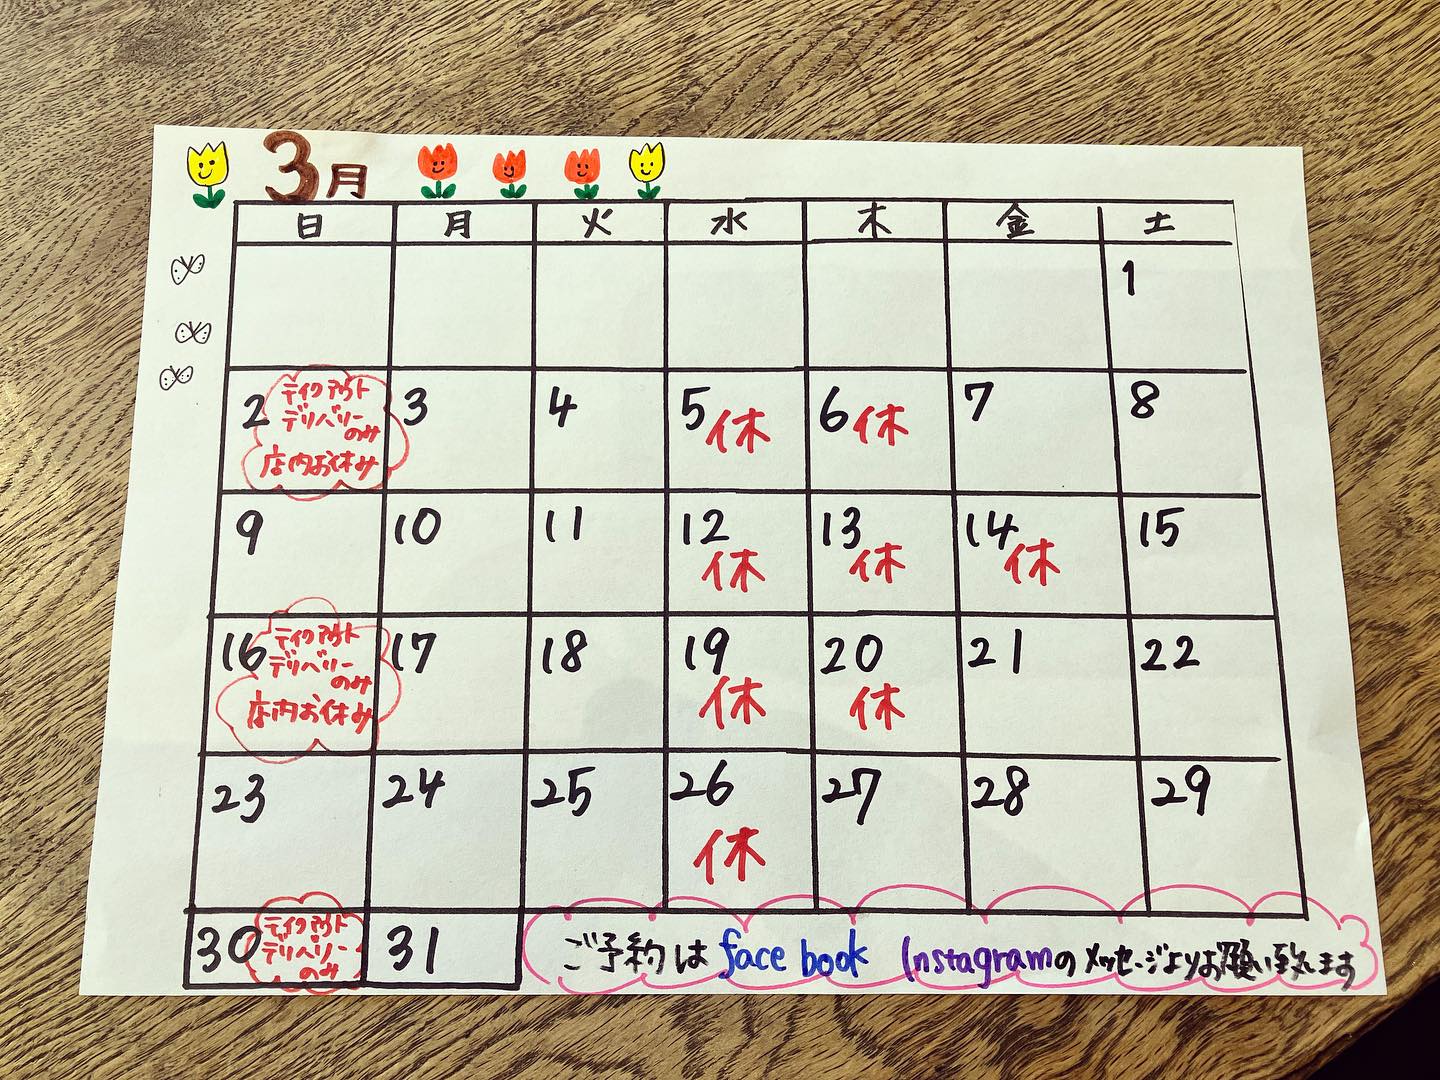 3月
日 月 火 水 木 金 土
1
2 テイクアウト
デリバリー
のみ
店内お休み
3
4
5 休
6 休
7
8
9
10
11
12
休
13
休
14
休
15
16 テイクアウト
デリバリー
のみ
店内お休み
17
18
19
休
20
休
21
22
23
24
25
26
休
27
28
29
30 テイクアウト
デリバリー
のみ
31
ご予約は facebook Instagramの メッセージよりお願い致します